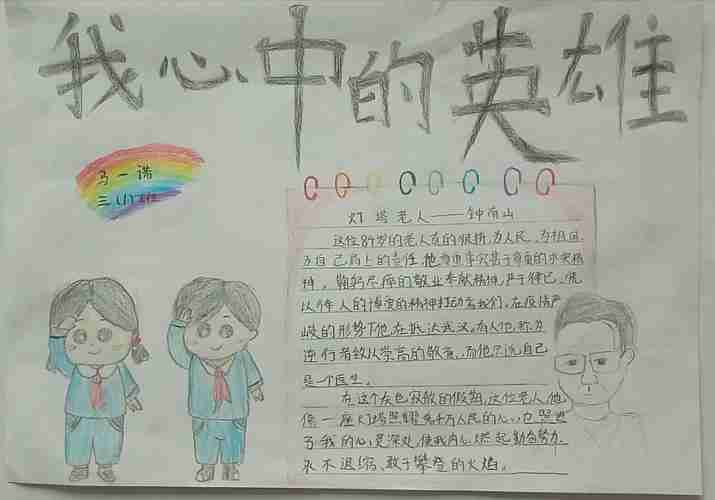 我心中的英雄
马一诺
三(1)班
灯塔老人——钟南山
这位84岁的老人真的很拼,为人民、为祖国、
为自己肩上的责任,他
精神,鞠躬尽瘁的敬业奉献精神,严于律己,宽
以待人的博爱的精神打动着我们,在疫情严
峻的形势下他在抵达武汉,有人也称为
逆行者致以崇高的敬意,而他只说自己
是一个医生。
在这个灰色寂静的假期,这位老人,他
像一座灯塔照耀着千万人民的心,也照进
了我的心灵深处,使我内心燃起勤奋努力、
永不退缩、敢于攀登的火焰。